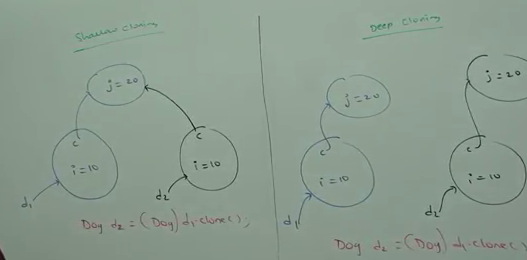 Shallow cloning
j = 20
c
i = 10
d1
c
i = 10
d2
Dog d2 = (Dog) d1.clone();
Deep Cloning
j = 20
c
i = 10
d1
j = 20
c
i = 10
d2
Dog d2 = (Dog) d1.clone()